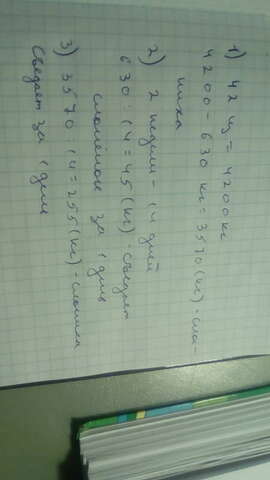 1) 42 ц = 4200 кг
4200 - 630 кг = 3570 (кг) - сло-
ниха
2) 2 недели - 14 дней
630 : 14 = 45 (кг) - съедает
слонёнок за 1 день
3) 3570 : 14 = 255 (кг) - слониха
Съедает за 1 день